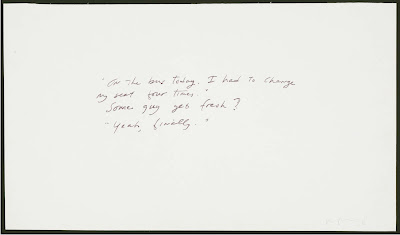 "On the bus today. I had to change
my seat four times."
Some guy get fresh?
"Yeah, finally."